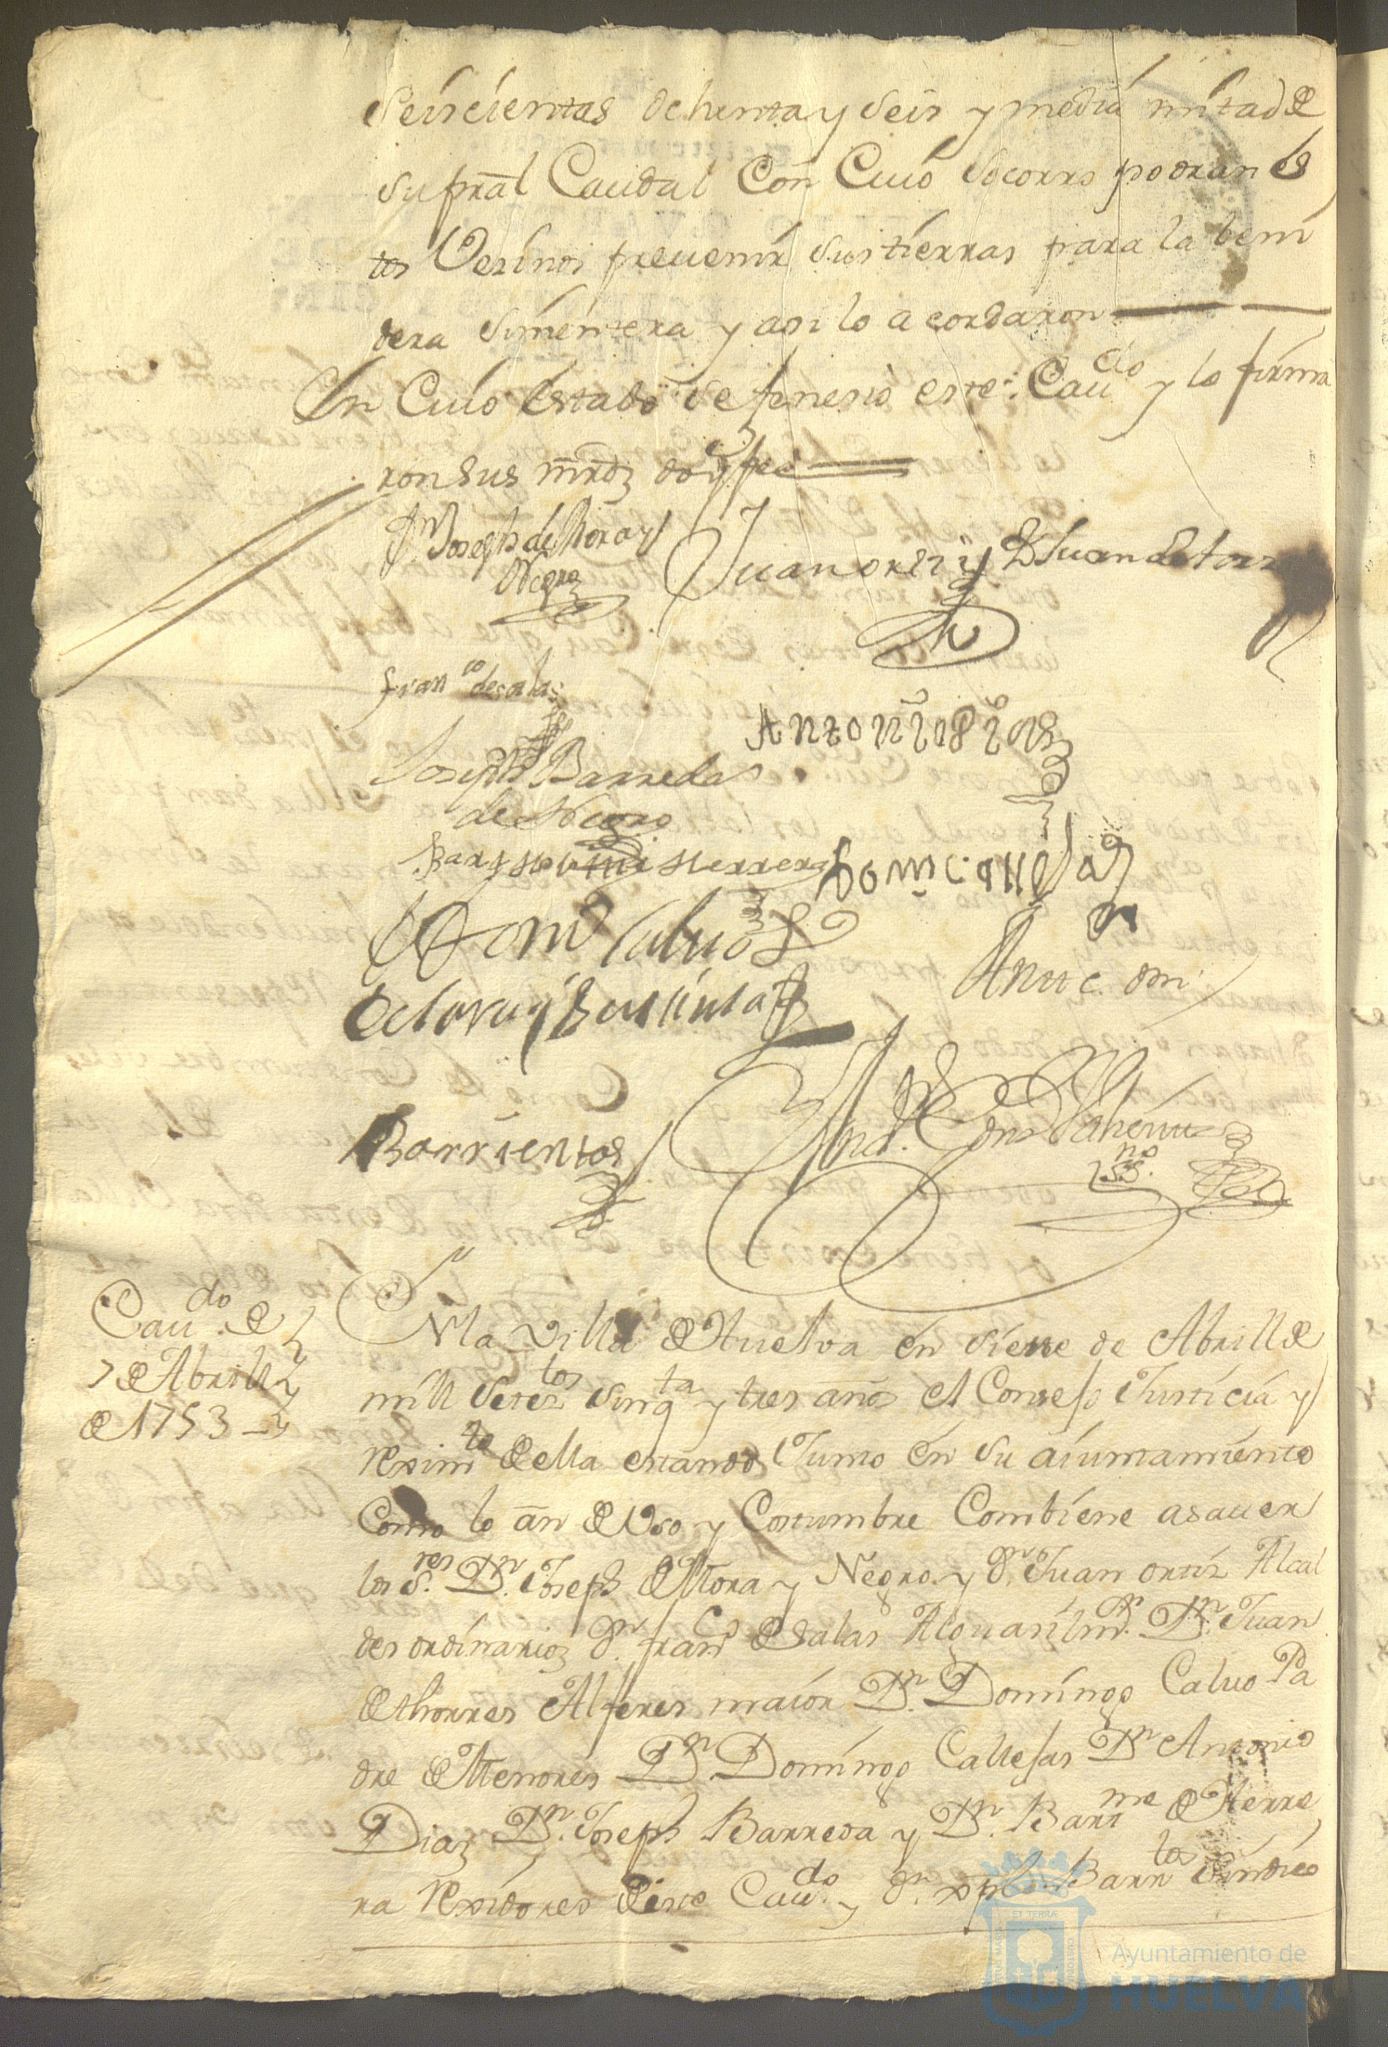 Seiscientas ochenta y Seis y media mitad de
su pral Caudal Con Cuio Socorro podran es
tos Vesinos prevenir sus tierras para la beni
dera Simentera y asi lo acordaron
En Cuio estado se fenesio este Cavdo y lo firma
ron sus mrds doy fee
Dn Joseph de Mora y
Negro
Juan ortiz
Dn Juan de torres
Franco de Salas
Antonio Dias
Joseph Barreda
Bartholome Herrera
Domo Callejas
Domo Calvo
Barrientos
Ante mi
Cavdo de
7 de Abrill
de 1753
En la Villa de Huelva en siette de Abrill de
mill Setezos Sinqta y tres años el Consejo Justicia y
Reximto de ella estando Junto en su aiuntamiento
Como lo an de Uso y Costumbre Combiene a saver
los Sres Dn Joseph de Mora y Negro y Dn Juan ortiz Alcal
des ordinarios Dn franco de Salas Alguasil mr Dn Juan
de thorres Alferes maior Dn Domingo Calvo Pa
dre de Menores Dn Domingo Callejas Dn Antonio
Diaz Dn Joseph Barreda y Dn Bartme de Herre
ra Rexidores de este Cavdo y Dn xpl Barrtos Sindico
Ayuntamiento de
HUELVA